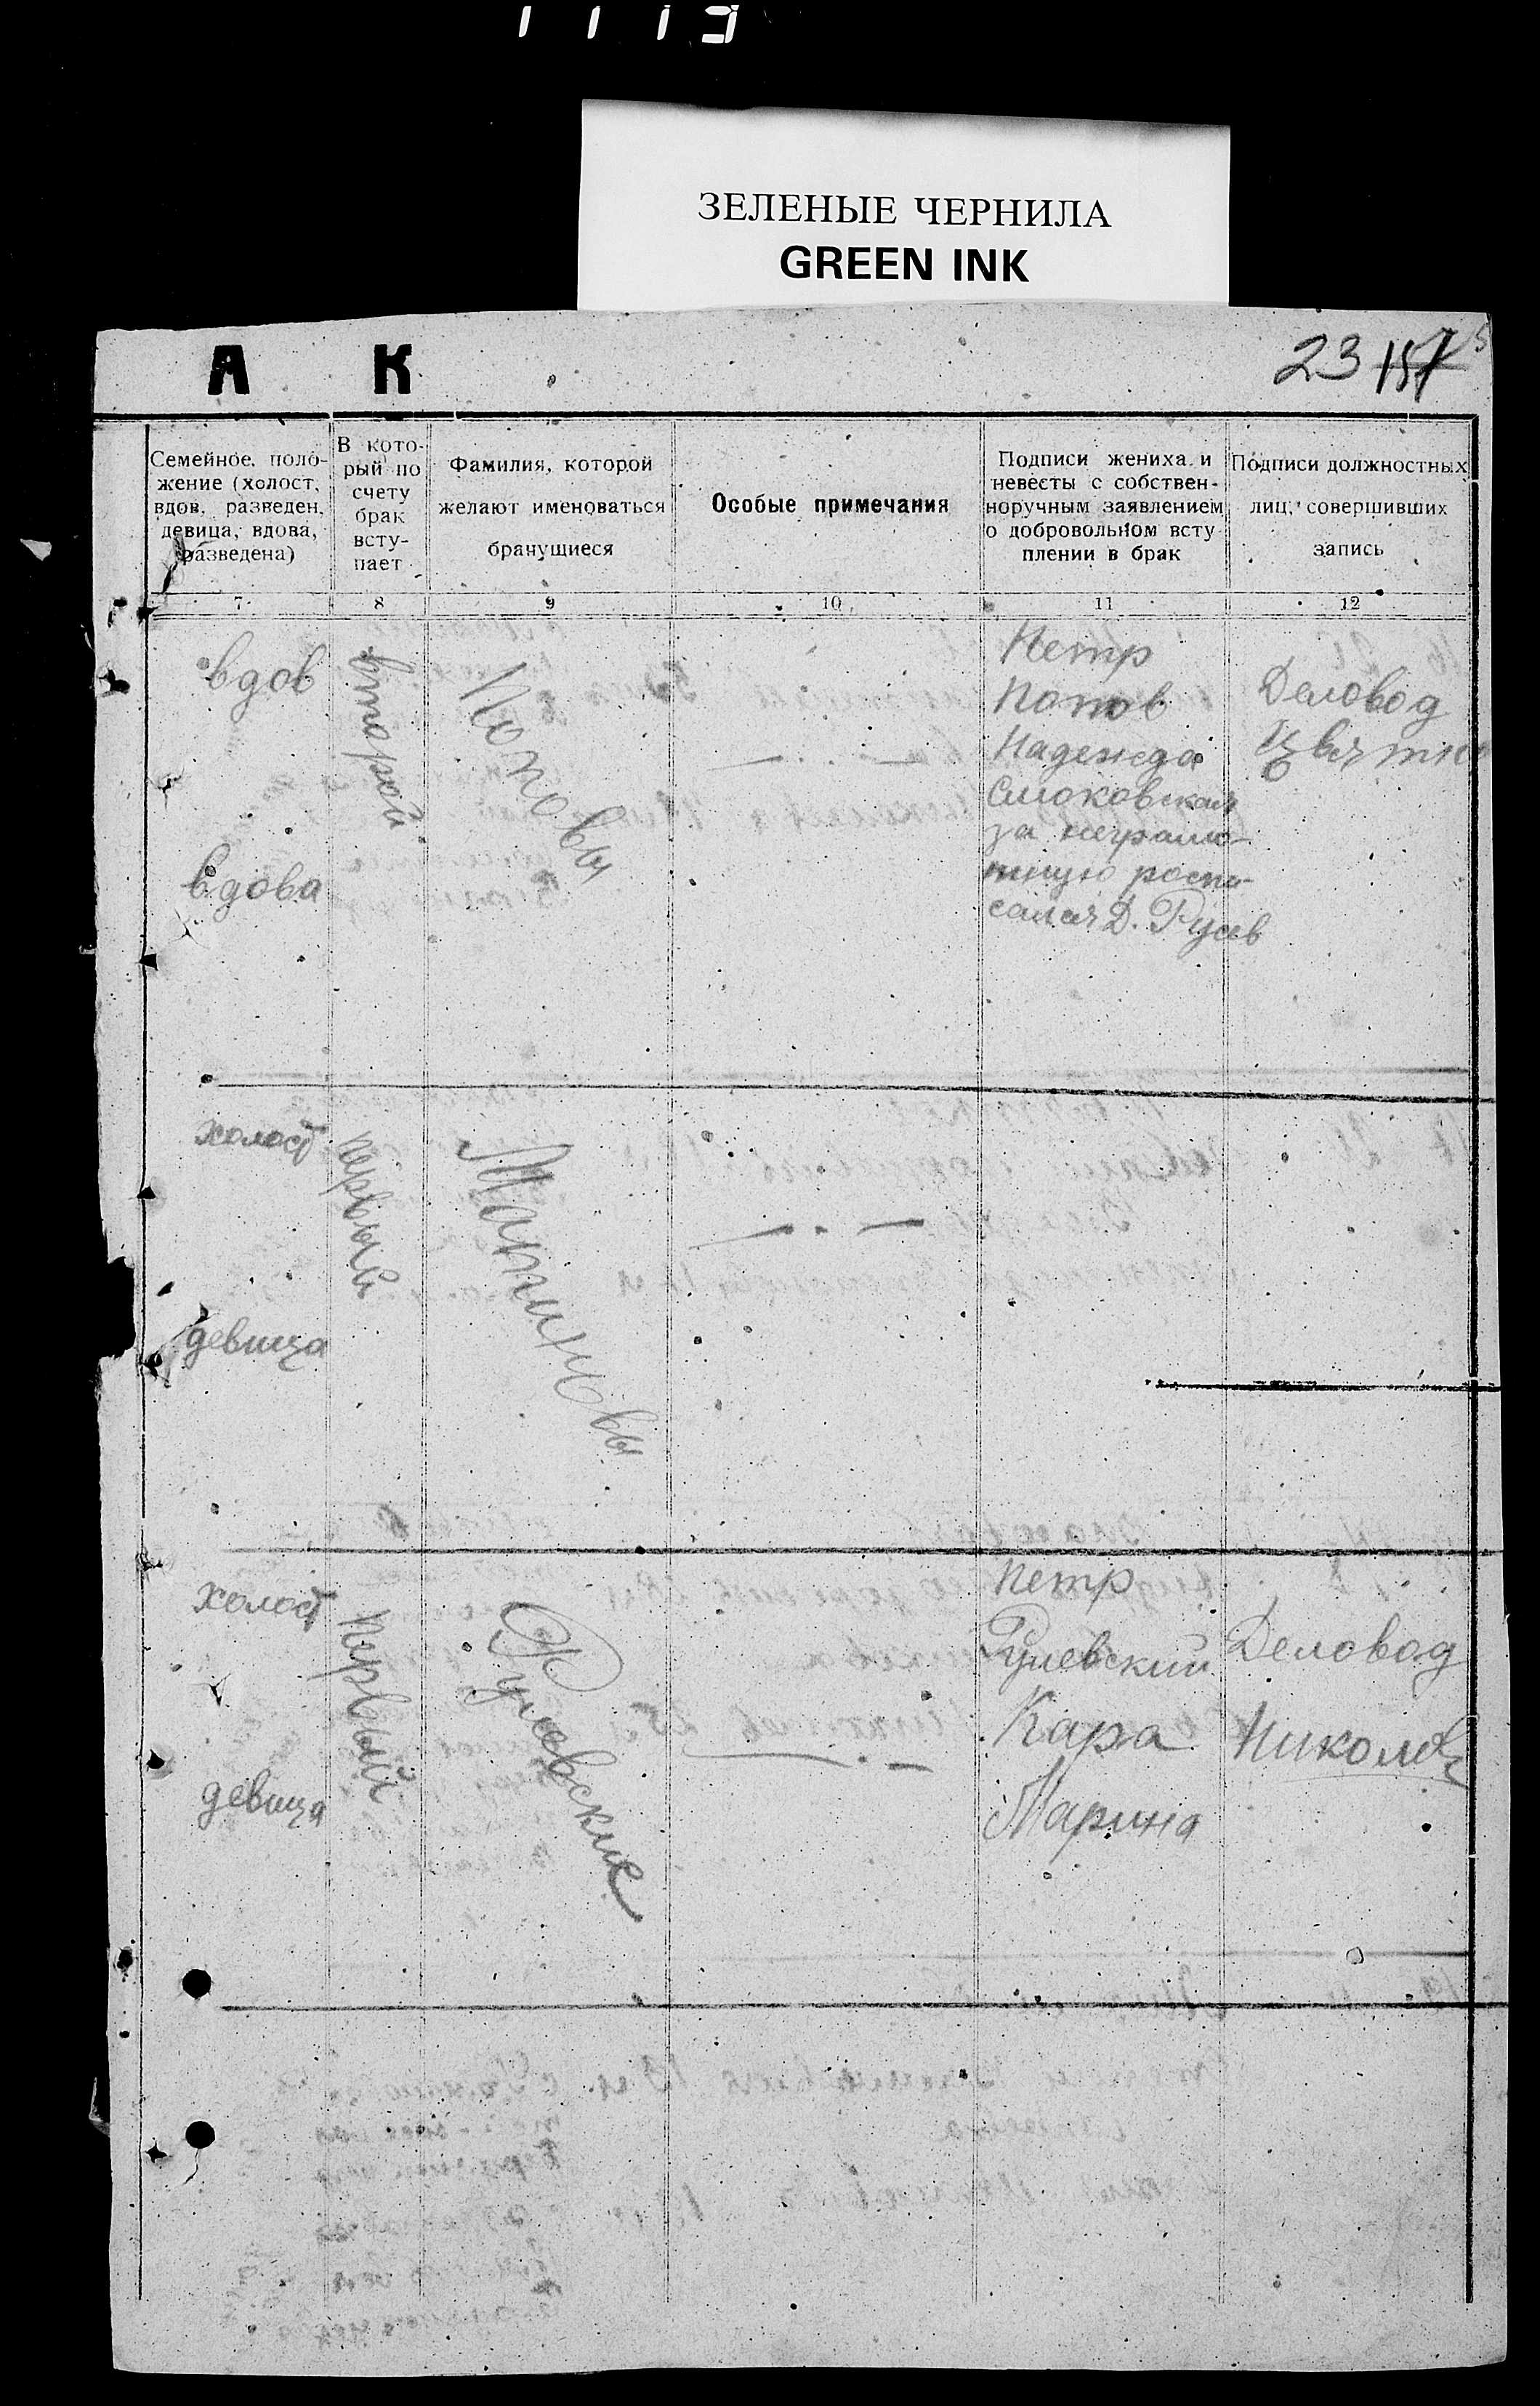 1113
ЗЕЛЕНЫЕ ЧЕРНИЛА
GREEN INK
А К
23 157
Семейное поло-
жение (холост,
вдов, разведен,
девица, вдова,
разведена)
В кото-
рый по
счету
брак
всту-
пает
Фамилия, которой
желают именоваться
бранущиеся
Особые примечания
Подписи жениха и
невесты с собствен-
норучным заявлением
о добровольном всту
плении в брак
Подписи должностных
лиц, совершивших
запись
7 8 9 10 11 12
вдов
вдова
второй
Поповы
Петр
Попов
Надежда
Смоковская
за неграмо-
тную роспи-
сался Д. Русев
Деловод
холост
девица
первый
Мариновы
холост
девица
первый
Рулевские
Петр
Рулевский
Кара
Марина
Деловод
Николов